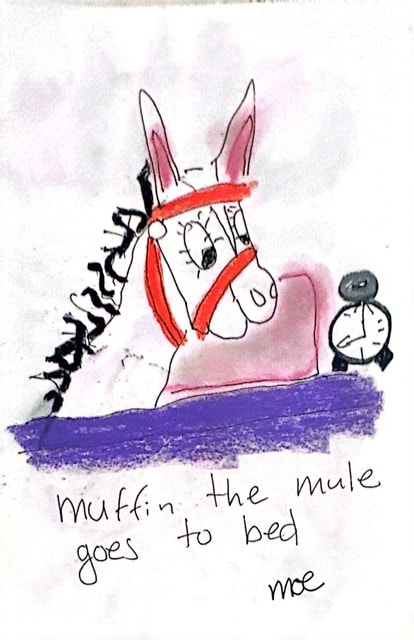 muffin the mule
goes to bed
moe